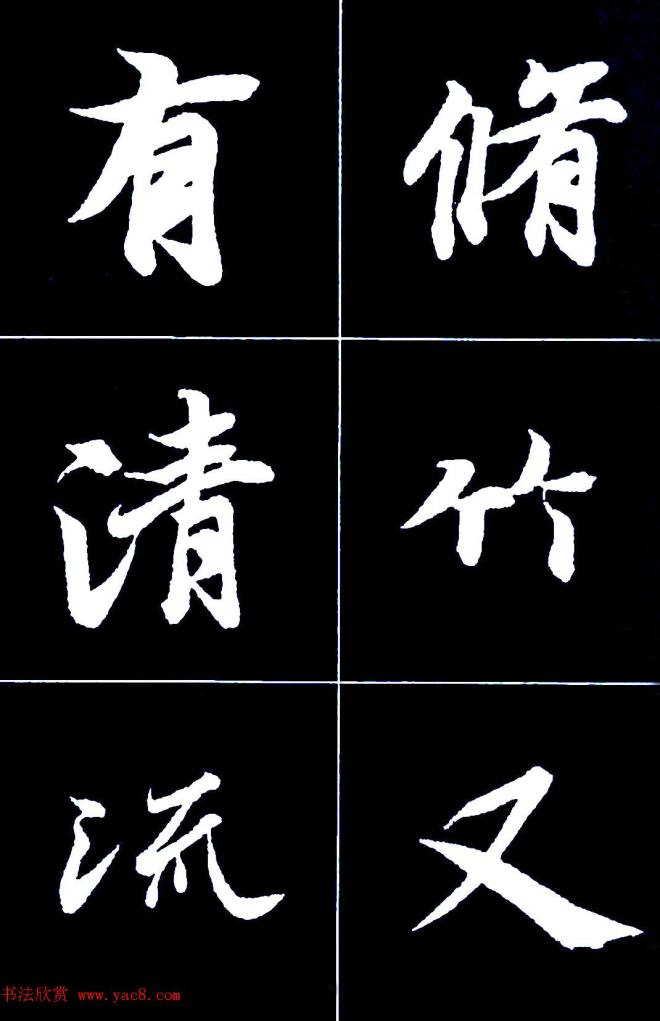 脩竹又
有清流
书法欣赏 www.yac8.com